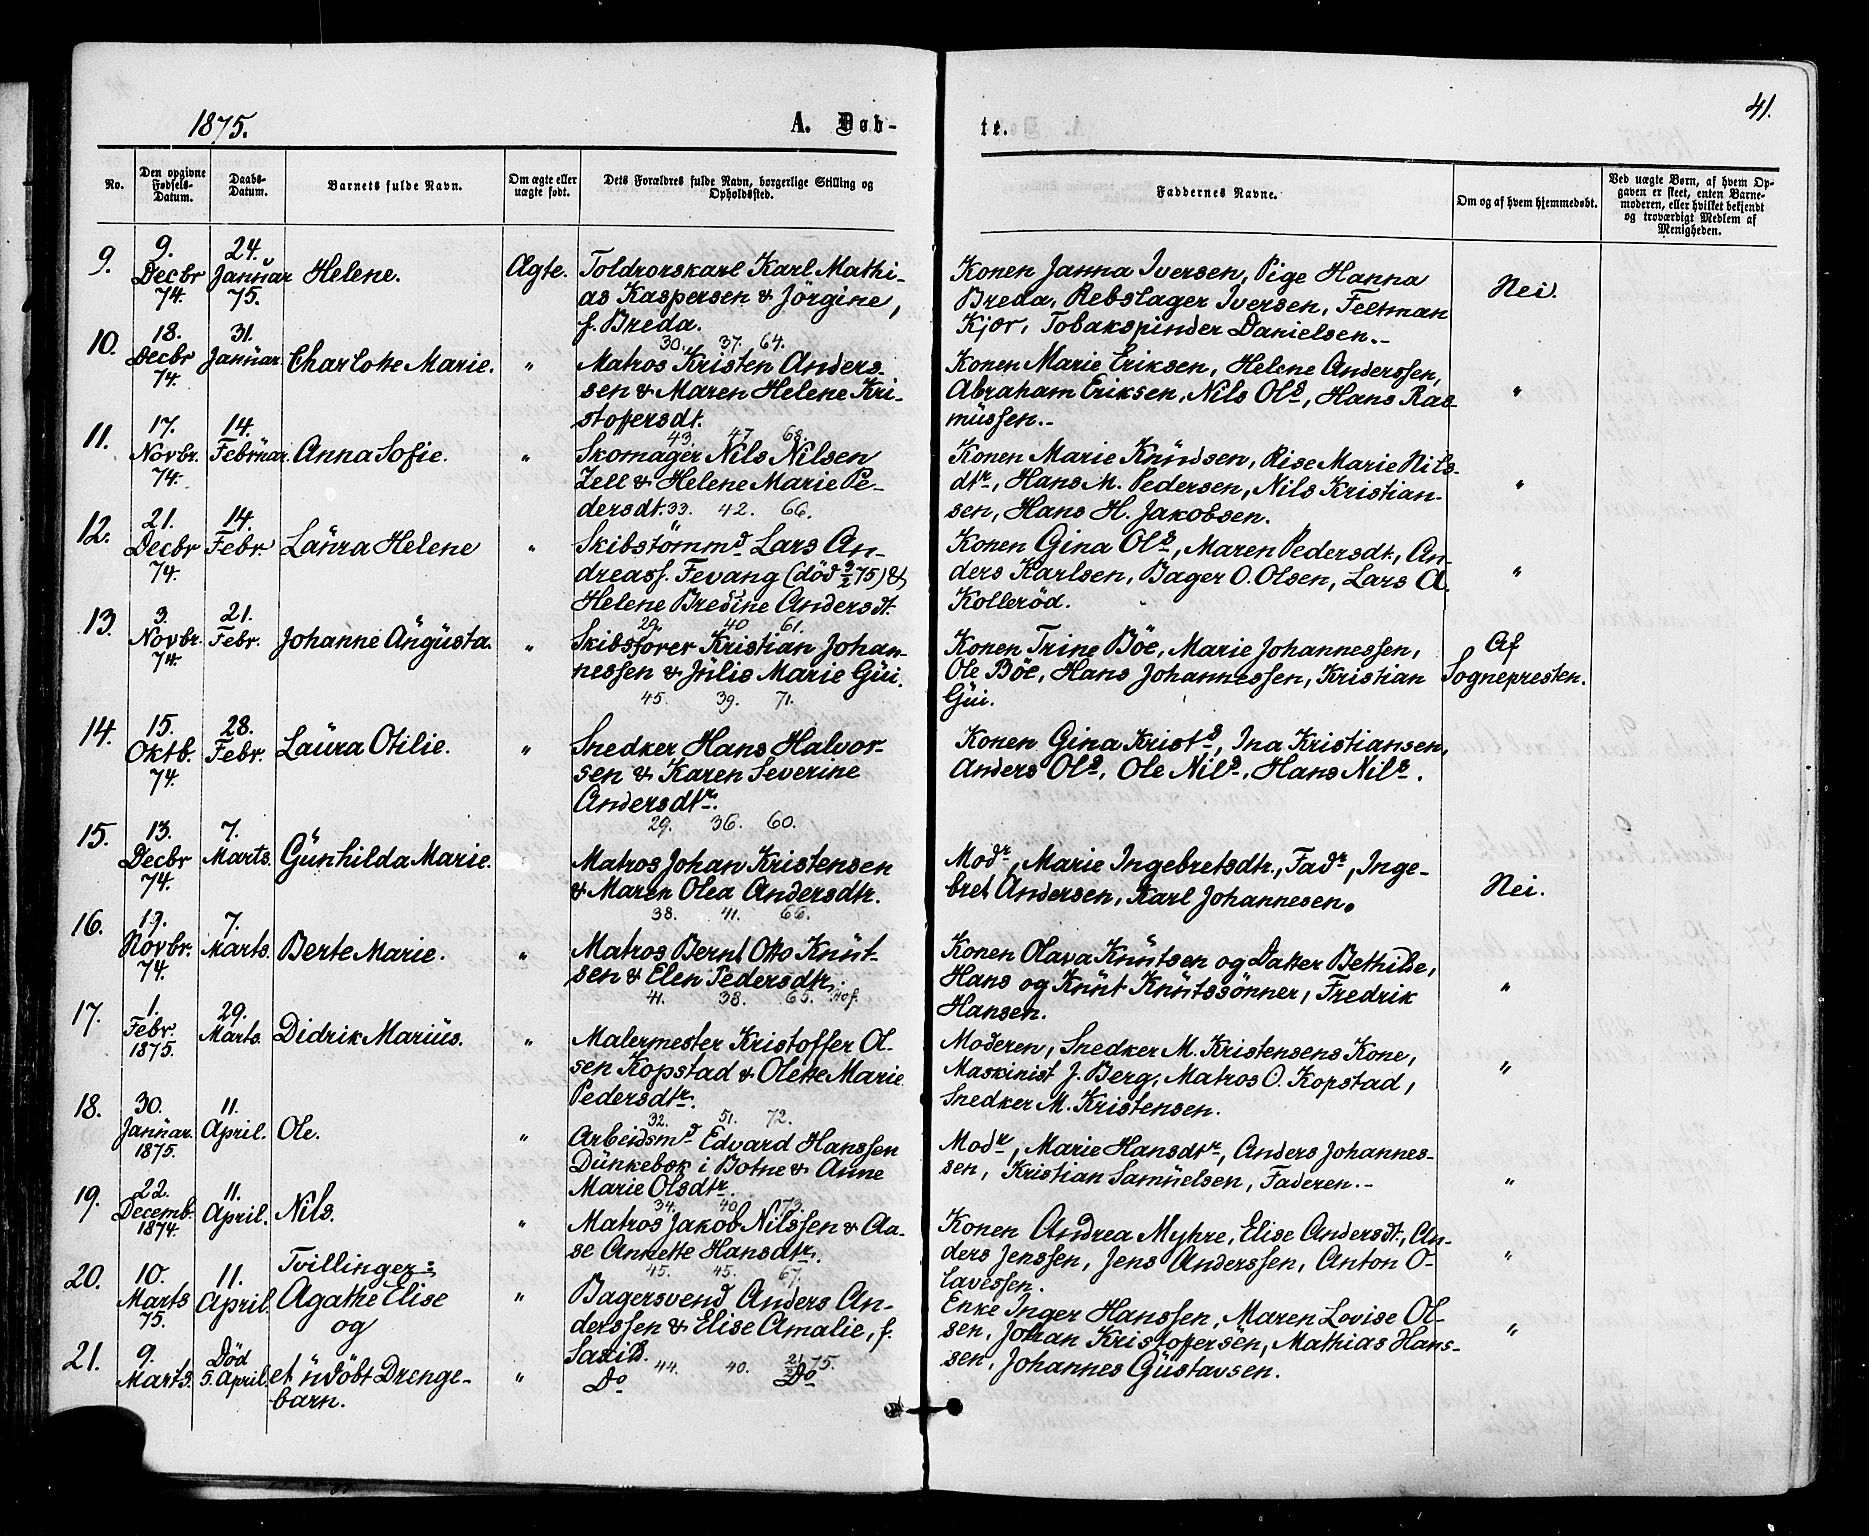 1875.
A. Døb-
te.
41.
No.
Den opgivne Fødsels-Datum.
Daabs-Datum.
Barnets fulde Navn.
Om ægte eller uægte født.
Dets Forældres fulde Navn, borgerlige Stilling og Opholdssted.
Faddernes Navne.
Om og af hvem hjemmedøbt.
Ved uægte Børn, af hvem Op-
gaven er skeet, enten Barne-
moderen, eller hvilket bekjendt
og troværdigt Medlem af
Menigheden.
9. 9. Decbr 74. 24. Januar 75. Helene. Ægte.
Toldrorskarl Karl Mathi-
as Kaspersen & Jörgine,
f. Breda.
30. 37. 64.
Konen Janna Iversen, Pige Hanna
Breda, Rebslager Iversen, Feltman
Kjær, Tobakspinder Danielsen.-
Nei.
10. 18. Decbr 74. 31. Januar Charlotte Marie. "
Matros Kristen Anders-
sen & Maren Helene Kri-
stoffersdt.
43. 47. 68.
Konen Marie Eriksen, Helene Anderssen,
Abraham Eriksen, Nils Ols, Hans Ras-
mussen.-
"
11. 17. Novbr. 74. 14. Februar. Anna Sofie. "
Skomager Nils Nilsen
Zell & Helene Marie Pe-
dersdt. 33. 42. 66.
Konen Marie Knudsen, Rise Marie Nils-
dtr, Hans M. Pedersen, Nils Kristian-
sen, Hans H. Jakobsen.
"
12. 21. Decbr 74. 14. Febr. Laura Helene "
Skibstömmd Lars An-
dreass. Fevang (död 9/2 75) &
Helene Bredine Andersdt.
29. 40 61.
Konen Gina Ols, Maren Pedersdt, An-
ders Karlsen, Bager O. Olsen, Lars A.
Kolleröd.
"
13. 3. Novbr. 74. 21. Febr. Johanne Augusta. "
Skibsförer Kristian Johan-
nessen & Julie Marie Gui.
45. 39. 71.
Konen Trine Böe, Marie Johannessen,
Ole Böe, Hans Johannessen, Kristian
Gui.
Af
Sognepresten.
14. 15. Oktb. 74. 28. Febr. Laura Otilie. "
Snedker Hans Halvor-
sen & Karen Severine
Andersdtr.
29. 36. 60.
Konen Gina Krists, Ina Kristiansen,
Anders Ols, Ole Nils, Hans Nils.
15. 13. Decbr 74. 7. Marts. Gunhilda Marie.
Matros Johan Kristensen
& Maren Olea Andersdtr.
38. 41. 66.
Modr, Marie Ingebretsdtr., Fadr, Inge-
bret Andersen, Karl Johannesen.
Nei.
16. 19. Novbr. 74. 7. Marts. Berte Marie. "
Matros Bernt Otto Knut-
sen & Elen Pedersdtr.
41. 38. 65. Hof.
Konen Olava Knutsen og Datter Bethilde,
Hans og Knut Knutssönner, Fredrik
Hansen.
"
17. 1. Febr. 1875. 29. Marts. Didrik Marius. "
Malermester Kristoffer Ol-
sen Kopstad & Olette Marie
Pedersdtr.
32. 51. 72.
Moderen, Snedker M. Kristensens Kone,
Maskinist J. Berg, Matros O. Kopstad,
Snedker M. Kristensen.
"
18. 30. Januar. 1875. 11. April. Ole. "
Arbeidsmd Edvard Hanssen
Dunkebæk i Botne & Anne
Marie Olsdtr.
34. 40. 73.
Modr, Marie Hansdtr, Anders Johannes-
sen, Kristian Samuelsen, Faderen.-
"
19. 22. Decemb. 1874. 11. April. Nils. "
Matros Jakob Nilssen & Aa-
se Annette Hansdtr.
45. 45. 67.
Konen Andrea Myhre, Elise Andersdt., An-
ders Jenssen, Jens Anderssen, Anton O-
lavessen.
"
Tvillinger:
20. 10. Marts 75. 11. April. Agathe Elise "
og
Bagersvend Anders An-
derssen & Elise Amalie, f.
Saxild.
44. 40.
Enke Inger Hanssen, Maren Lovise Ol-
sen, Johan Kristoffersen, Mathias Hans-
sen, Johannes Gustavsen.
"
21. 9. Marts. Död 5. April. et udöbt Drenge-
barn. "
Do Do